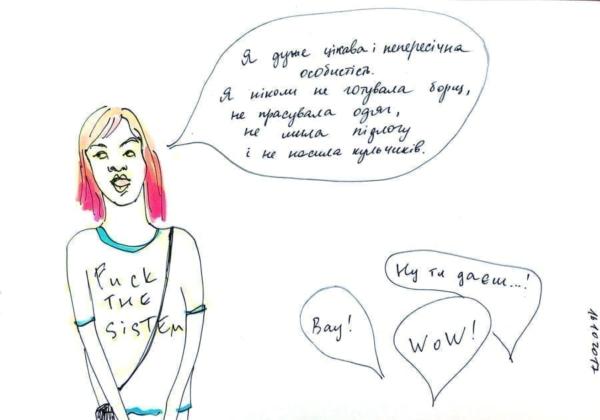 Я дуже цікава і непересічна
особистість.
Я ніколи не готувала борщ,
не прасувала одяг,
не мила підлогу
і не носила кульчиків.
Fuck
THE
SiSTEM
Вау!
WoW!
Ну ти даєш...!
11.10.2017